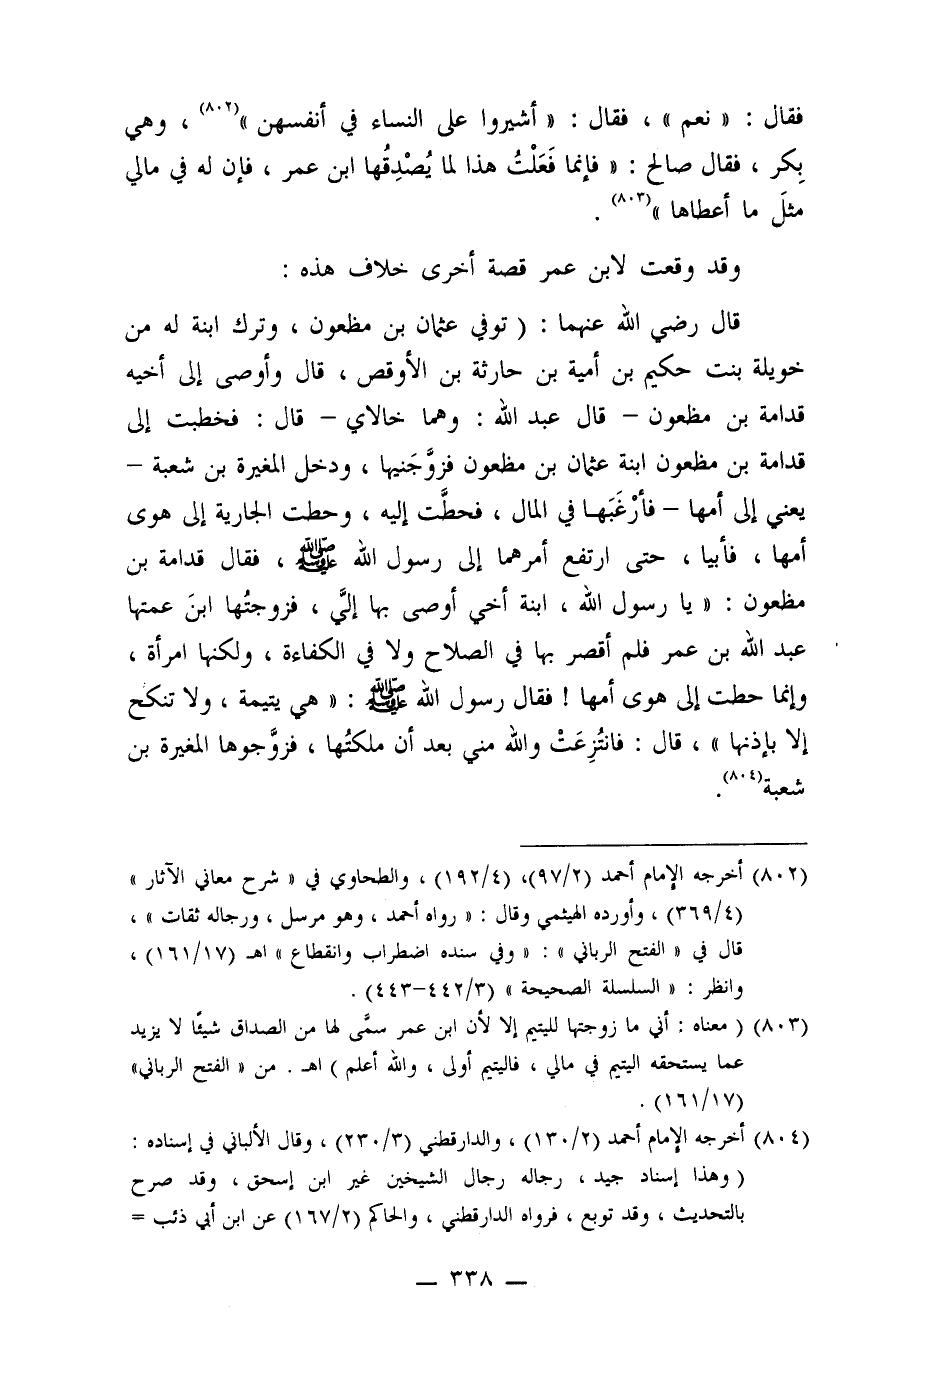 فقال : « نعم » ، فقال : « أشيروا على النساء في أنفسهن »(٨٠٢) ، وهي
بِكر ، فقال صالح : « فإنما فَعَلْتُ هذا لما يُصْدِقُها ابن عمر ، فإن له في مالي
مثلَ ما أعطاها »(٨٠٣) .
وقد وقعت لابن عمر قصة أخرى خلاف هذه :
قال رضي الله عنهما : ( توفي عثمان بن مظعون ، وترك ابنة له من
خويلة بنت حكيم بن أمية بن حارثة بن الأوقص ، قال وأوصى إلى أخيه
قدامة بن مظعون – قال عبد الله : وهما خالاي – قال : فخطبت إلى
قدامة بن مظعون ابنة عثمان بن مظعون فزوَّجَنيها ، ودخل المغيرة بن شعبة –
يعني إلى أمها – فأرْغَبَها في المال ، فحطَّت إليه ، وحطت الجارية إلى هوى
أمها ، فأبيا ، حتى ارتفع أمرهما إلى رسول الله ﷺ ، فقال قدامة بن
مظعون : « يا رسول الله ، ابنة أخي أوصى بها إليَّ ، فزوجتُها ابنَ عمتها
عبد الله بن عمر فلم أقصر بها في الصلاح ولا في الكفاءة ، ولكنها امرأة ،
وإنما حطت إلى هوى أمها ! فقال رسول الله ﷺ : « هي يتيمة ، ولا تنكح
إلا بإذنها » ، قال : فانتُزِعَتْ والله مني بعد أن ملكتُها ، فزوَّجوها المغيرة بن
شعبة(٨٠٤).
(٨٠٢) أخرجه الإمام أحمد (٩٧/٢)، (١٩٢/٤) ، والطحاوي في « شرح معاني الآثار »
(٣٦٩/٤) ، وأورده الهيثمي وقال : « رواه أحمد ، وهو مرسل ، ورجاله ثقات » ،
قال في « الفتح الرباني » : « وفي سنده اضطراب وانقطاع » اهـ (١٦١/١٧) ،
وانظر : « السلسلة الصحيحة » (٤٤٢/٣–٤٤٣) .
(٨٠٣) ( معناه : أني ما زوجتها لليتيم إلا لأن ابن عمر سمَّى لها من الصداق شيئًا لا يزيد
عما يستحقه اليتيم في مالي ، فاليتيم أولى ، والله أعلم ) اهـ . من « الفتح الرباني»
(١٦١/١٧) .
(٨٠٤) أخرجه الإمام أحمد (١٣٠/٢) ، والدارقطني (٢٣٠/٣) ، وقال الألباني في إسناده :
( وهذا إسناد جيد ، رجاله رجال الشيخين غير ابن إسحق ، وقد صرح
بالتحديث ، وقد توبع ، فرواه الدارقطني ، والحاكم (١٦٧/٢) عن ابن أبي ذئب =
— ٣٣٨ —